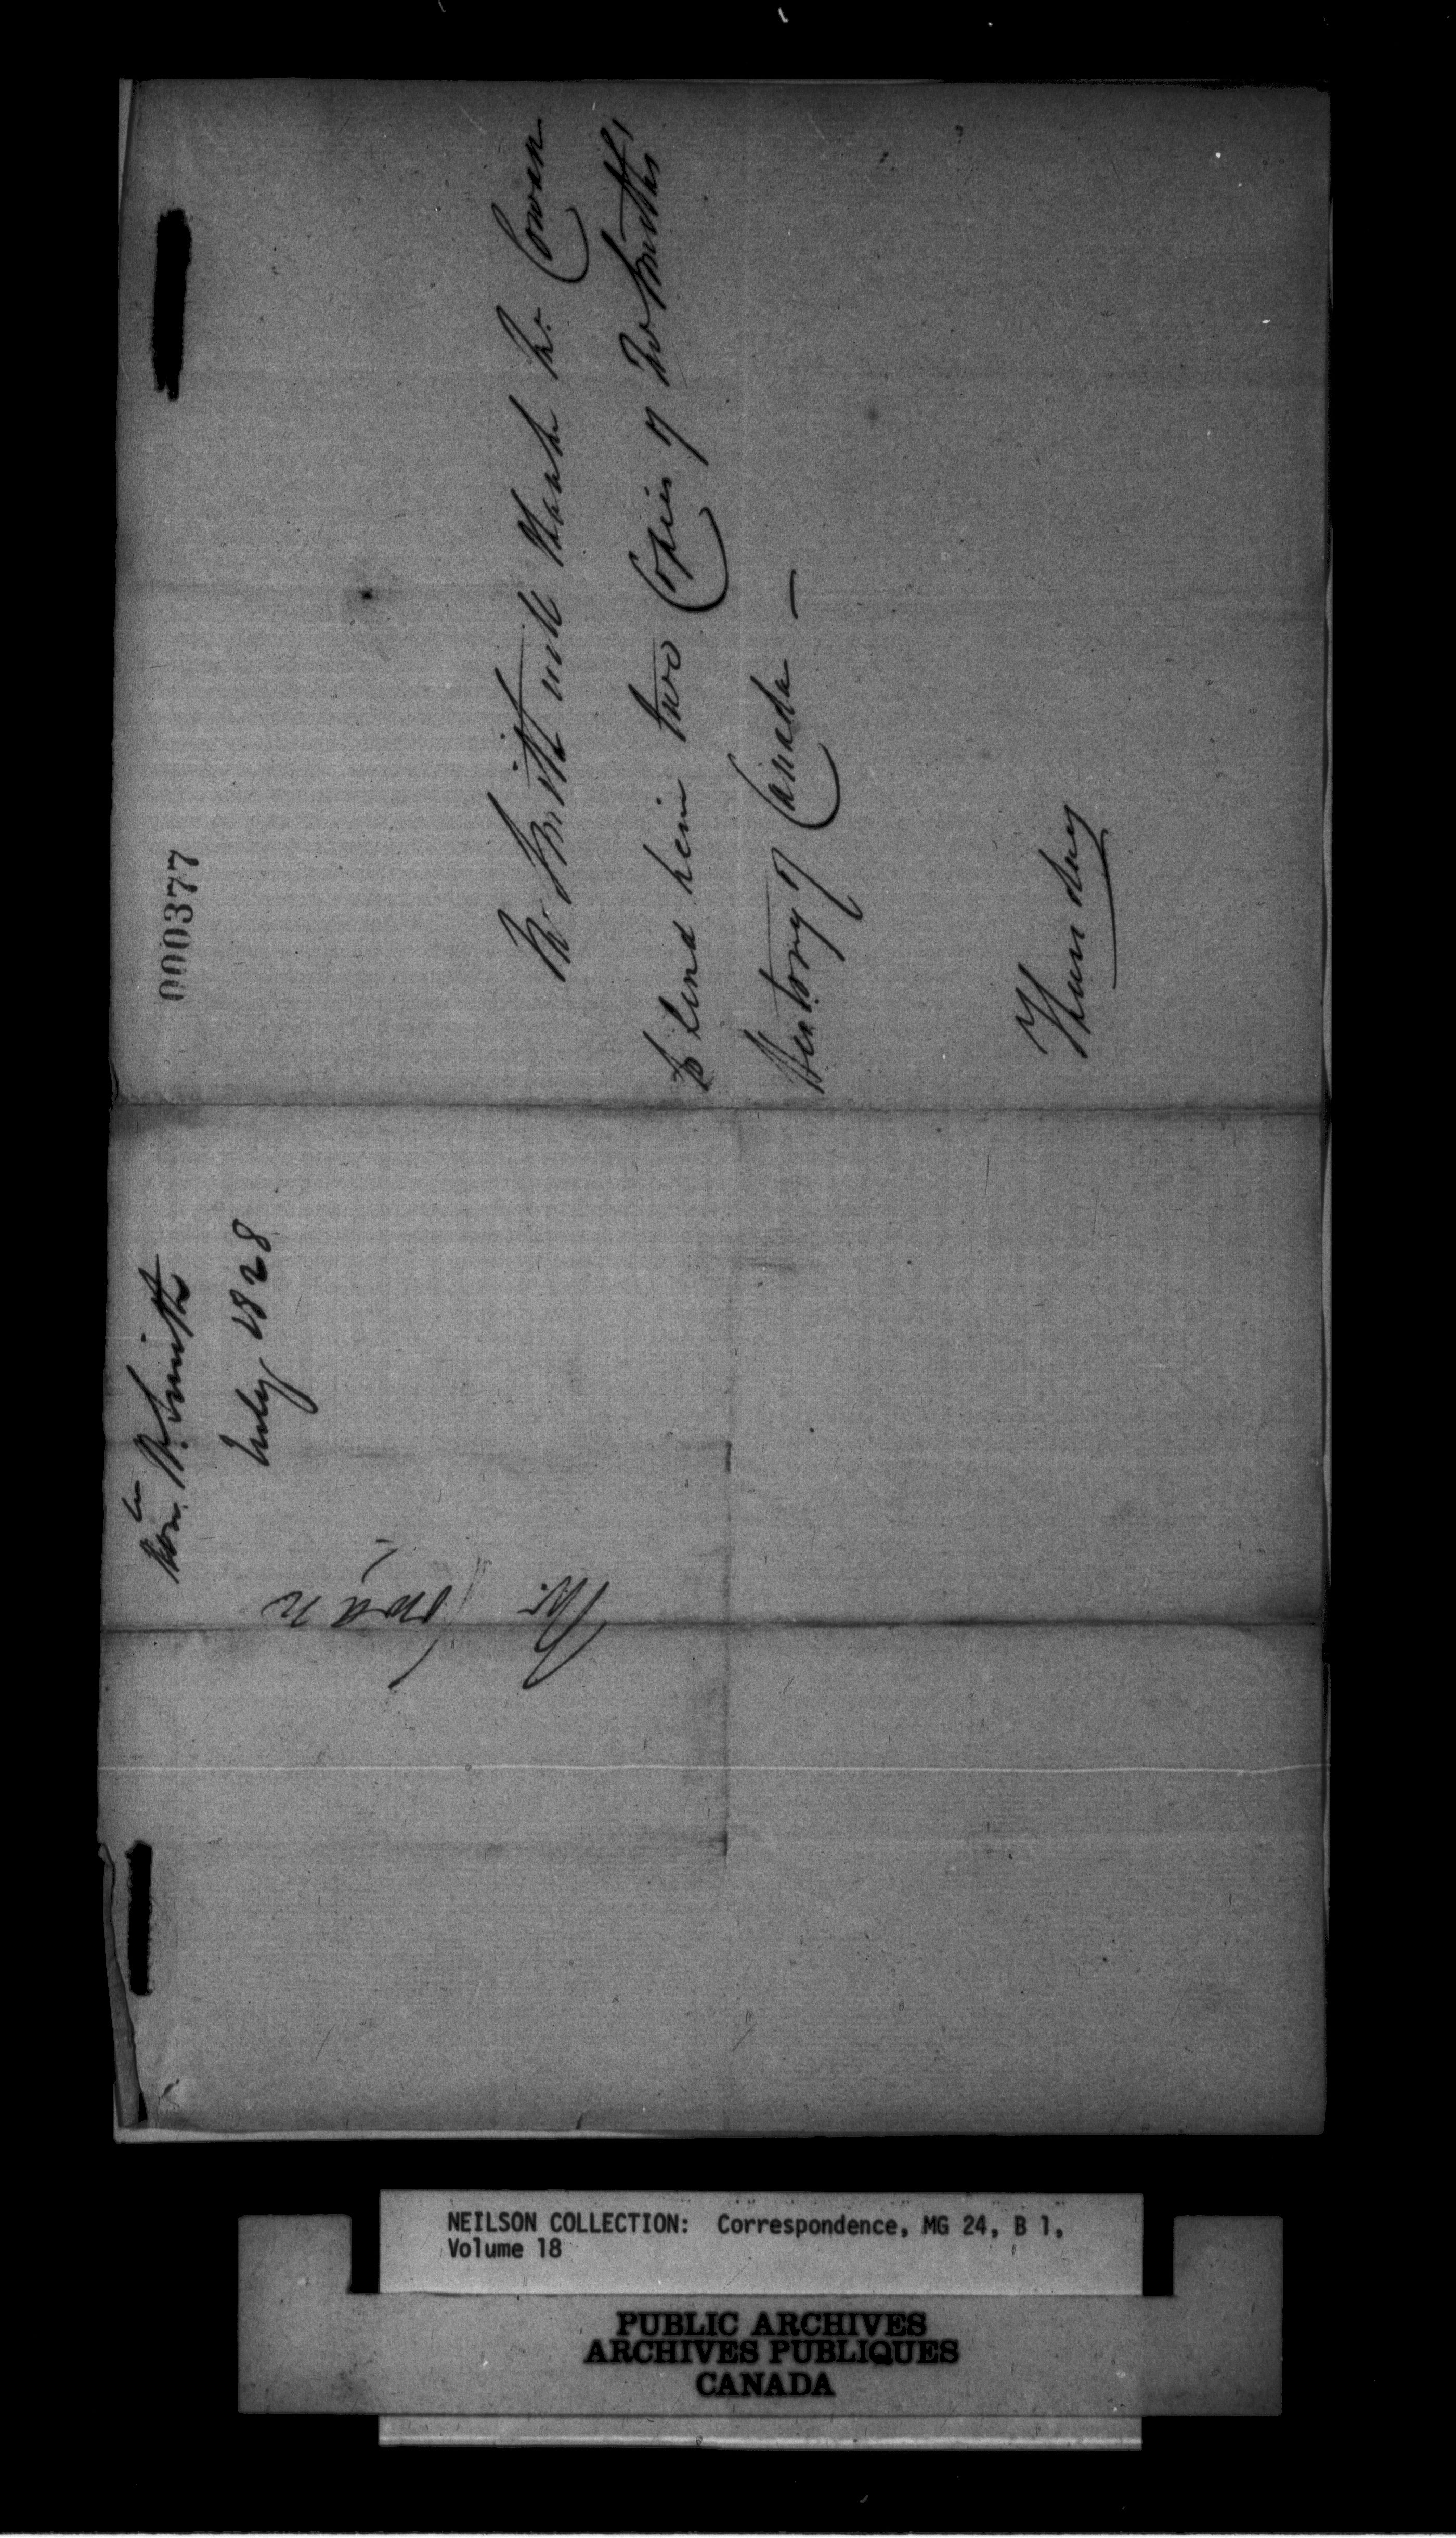 000377
Mr. Smith will thank Mr. Cowan
to send him two Copies of Wm Smith's
History of Canada —
Thursday
Honble W. Smith
July 1828
Mr.
Cowan
NEILSON COLLECTION: Correspondence, MG 24, B 1,
Volume 18
PUBLIC ARCHIVES
ARCHIVES PUBLIQUES
CANADA